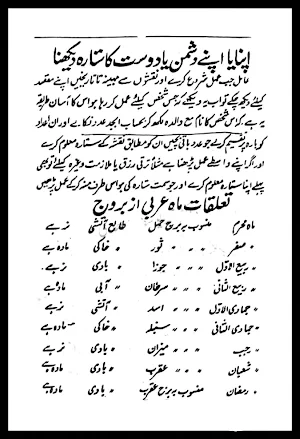 اپنا یا اپنے دشمن یا دوست کا ستارہ دیکھنا
عامل جب عمل شروع کرے اور نقشوں سے مہینہ تاریخیں اپنے مقصد
کیلئے دیکھ چکے تو اب یہ دیکھے کہ جس شخص کیلئے عمل کر رہا ہو اس کا آسان طریقہ
یہ ہے کہ اس شخص کا نام مع والدہ ملکھ کر بحساب ابجد عدد نکالے اور ان اعداد
کو بارہ پر تقسیم کرے جو عدد باقی بچیں ان کو مطابق نقشہ کے ستارہ معلوم کرے
اور اگر اپنے واسطے عمل پڑھنا ہے مثلاً ترقی رزق یا ملازمت وغیرہ کیلئے تو بھی
پہلے اپنا ستارہ معلوم کرے اور جو سمت ستارہ کی ہو اسی طرف منہ کر کے عمل پڑھیں
تعلقات ماہ عربی از بروج
ماہ محرم منسوب بہ برج حمل طالع آتشی نر ہے
〃 صفر 〃 〃 〃 ثور 〃 خاکی مادہ ہے
〃 ربیع الاول 〃 〃 〃 جوزا 〃 بادی نر ہے
〃 ربیع الثانی 〃 〃 〃 سرطان 〃 آبی مادہ ہے
〃 جمادی الاول 〃 〃 〃 اسد 〃 آتشی نر ہے
〃 جمادی الثانی 〃 〃 〃 سنبلہ 〃 خاکی مادہ ہے
〃 رجب 〃 〃 〃 میزان 〃 بادی نر ہے
〃 شعبان 〃 〃 〃 عقرب 〃 بادی مادہ ہے
〃 رمضان منسوب بہ برج عقرب 〃 بادی مادہ ہے